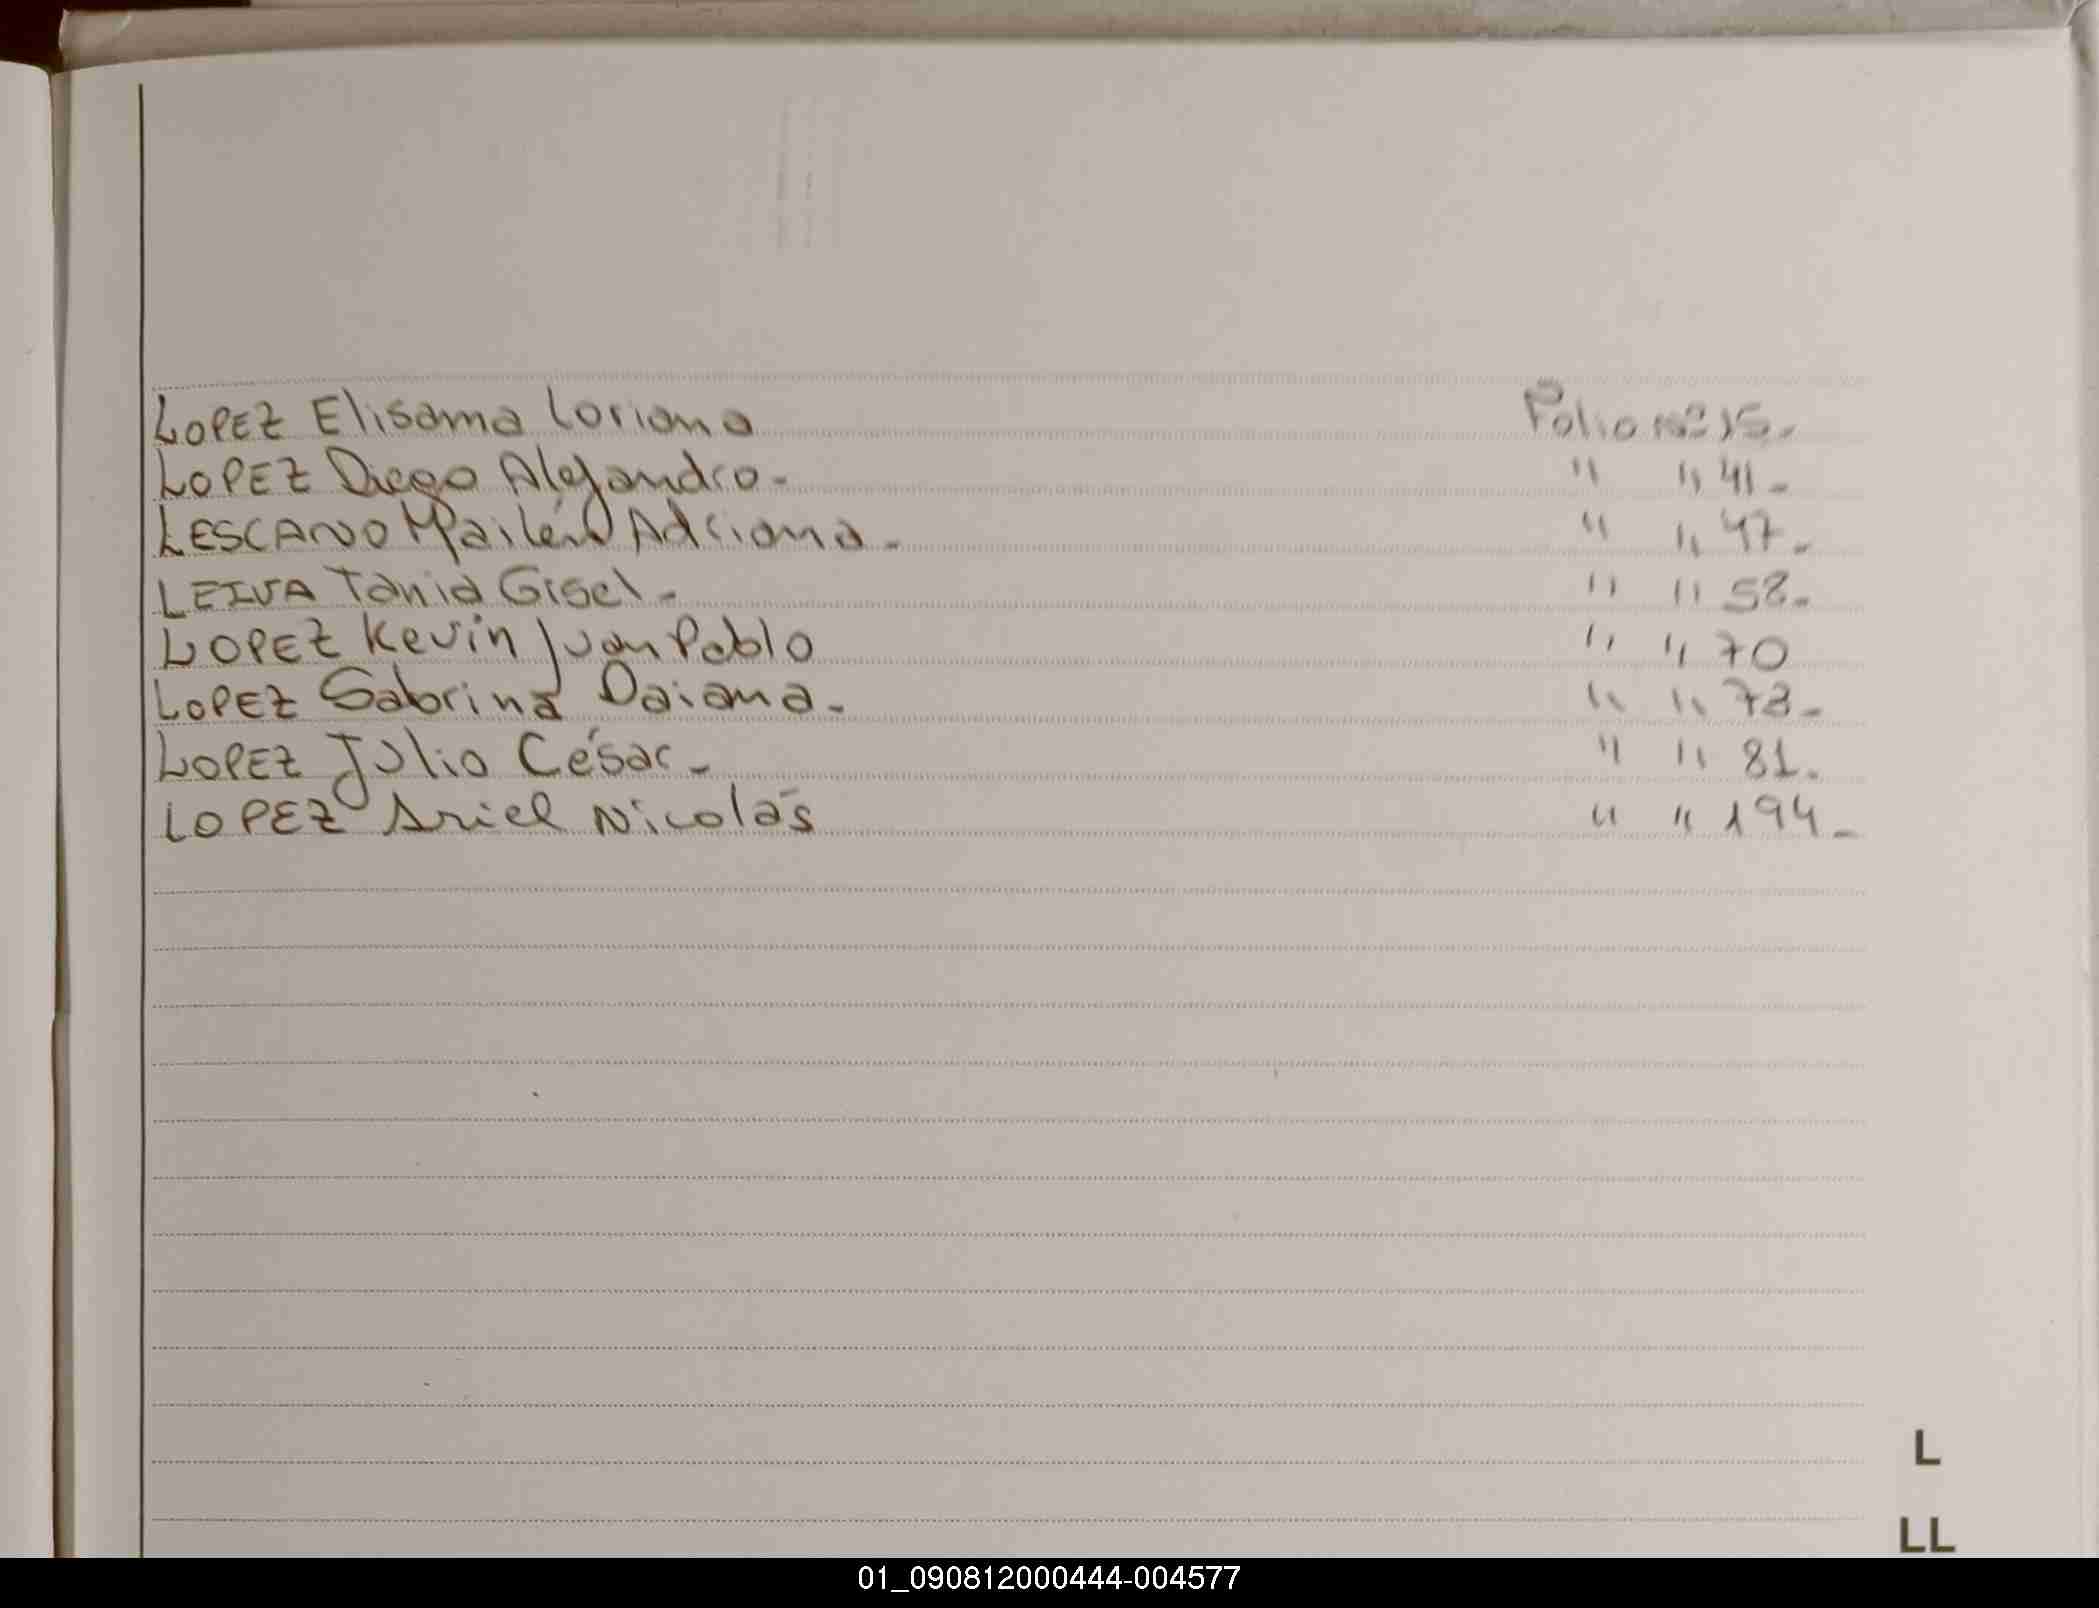 LOPEZ Elisama Loriana Folio nº 15.-
LOPEZ Diego Alejandro.- " " 41.-
LESCANO Mailén Adriana.- " " 47.-
LEIVA Tania Gisel.- " " 58.-
LOPEZ Kevin Juan Pablo " " 70
LOPEZ Sabrina Daiana.- " " 73.-
LOPEZ Julio César.- " " 81.
LOPEZ Ariel Nicolás " " 194.-
L
LL
01_090812000444-004577